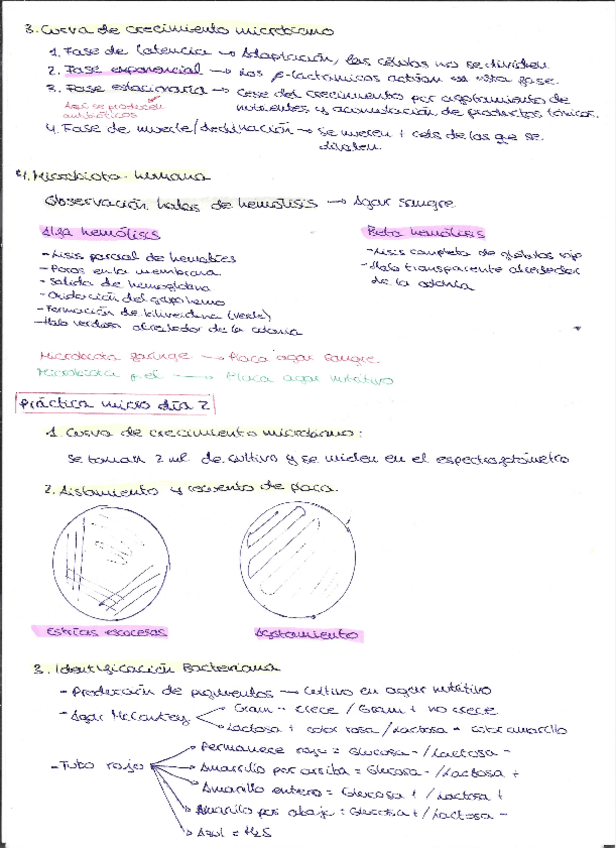 3. Curva de crecimiento microbiano
1. Fase de latencia → Adaptación, las células no se dividen
2. Fase exponencial → Los β-lactámicos actúan en esta fase.
3. Fase estacionaria → Cese del crecimiento por agotamiento de
nutrientes y acumulación de productos tóxicos.
Aquí se producen
antibióticos
4. Fase de muerte/declinación → Se mueren + céls de las que se
dividen.
4. Microbiota humana
Observación halos de hemólisis → Agar sangre
Alga hemólisis
- Lisis parcial de hematíes
- Poros en la membrana
- Salida de hemoglobina
- Oxidación del grupo hemo
- Formación de biliverdina (verde)
- Halo verdoso alrededor de la colonia
Beta hemólisis
- Lisis completa de glóbulos rojo
- Halo transparente alrededor
de la colonia
Microbiota faringe → Placa agar sangre.
Microbiota piel → Placa agar nutritivo
Práctica micro día 2
1. Curva de crecimiento microbiano:
Se toman 2 ml de cultivo y se miden en el espectrofotómetro
2. Aislamiento y recuento de placa.
Estrías escocesas
Agotamiento
3. Identificación Bacteriana
- Producción de pigmentos → Cultivo en agar nutritivo
- Agar McConkey
Gram - crece / Gram + no crece
Lactosa + color rosa / Lactosa - color amarillo
- Tubo rojo
Permanece rojo = Glucosa - / Lactosa -
Amarillo por arriba = Glucosa - / Lactosa +
Amarillo entero = Glucosa + / Lactosa +
Amarillo por abajo = Glucosa + / Lactosa -
Azul = H2S